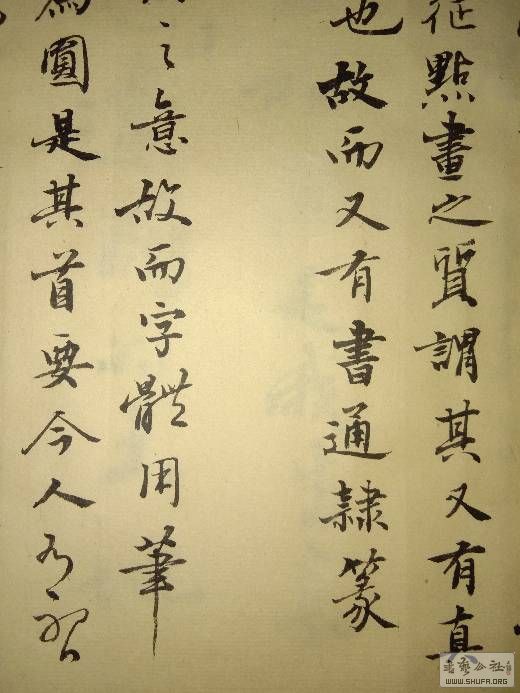 征點畫之質謂其又有真
也故而又有書通隸篆
之意故而字體用筆
為圓是其首要今人
書藝公社
WWW.SHUFA.ORG